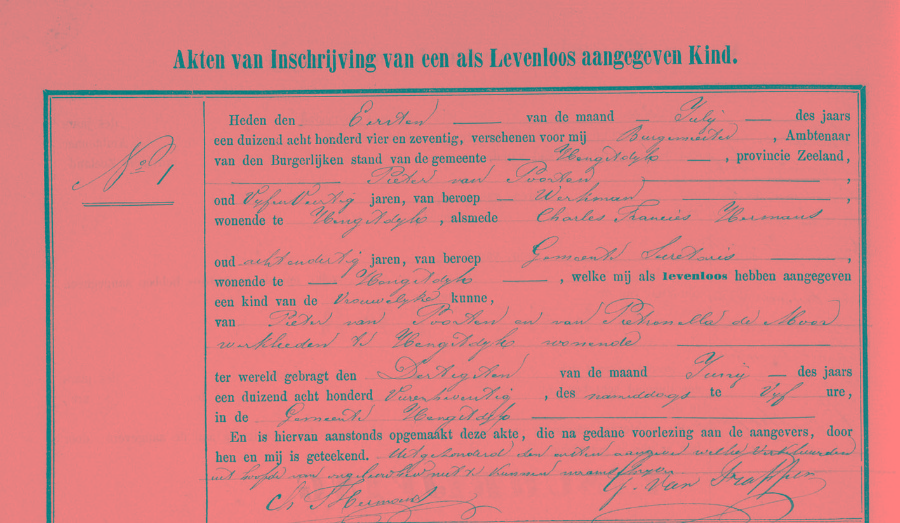 Akten van Inschrijving van een als Levenloos aangegeven Kind.
No 1
Heden den Eersten van de maand Julij des jaars
een duizend acht honderd vier en zeventig, verschenen voor mij Burgemeester, Ambtenaar
van den Burgerlijken stand van de gemeente Hengstdijk, provincie Zeeland,
Pieter van Poorten,
oud Vijfenveertig jaren, van beroep Werkman,
wonende te Hengstdijk, alsmede Charles Francies Hermans
oud achtendertig jaren, van beroep Gemeente Secretaris,
wonende te Hengstdijk, welke mij als levenloos hebben aangegeven
een kind van de Vrouwelijke kunne,
van Pieter van Poorten en van Pietronella de Moor
werklieden te Hengstdijk wonende
ter wereld gebragt den Dertigsten van de maand Junij des jaars
een duizend acht honderd Vierenzeventig, des namiddags te Vijf ure,
in de Gemeente Hengstdijk
En is hiervan aanstonds opgemaakt deze akte, die na gedane voorlezing aan de aangevers, door
hen en mij is geteekend. Uitgezonderd den eersten aangever welke verklaarde
uit hoofde van ongeleerdheid niet te kunnen
Ch F Hermans J. van